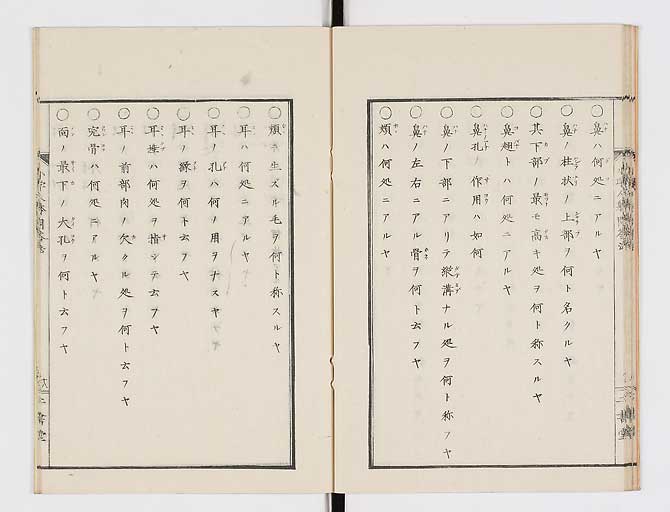 ○鼻ハ何処ニアルヤ
○鼻ノ柱状ノ上部ヲ何ト名クルヤ
○其下部ノ最モ高キ処ヲ何ト称スルヤ
○鼻翅トハ何処ニアルヤ
○鼻孔ノ作用ハ如何
○鼻ノ下部ニアリテ縦溝ナル処ヲ何ト称フヤ
○鼻ノ左右ニアル骨ヲ何ト云フヤ
○頬ハ何処ニアルヤ
○頬ニ生スル毛ヲ何ト称スルヤ
○耳ハ何処ニアルヤ
○耳ノ孔ハ何ノ用ヲナスヤ
○耳ノ縁ヲ何ト云フヤ
○耳埵ハ何処ヲ指シテ云フヤ
○耳ノ前部肉ノ欠クル処ヲ何ト云フヤ
○完骨ハ何処ニアルヤ
○面ノ最下ノ大孔ヲ何ト云フヤ